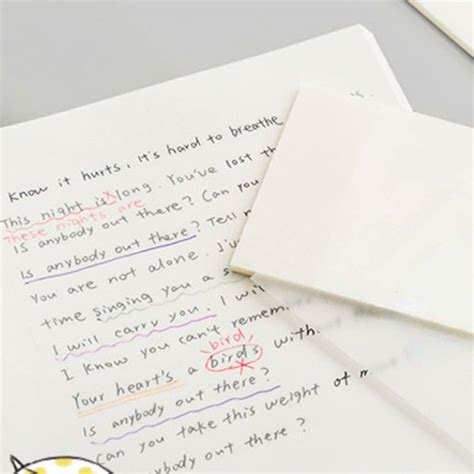 know it hurts, it's hard to breathe
This night is long. You've lost th
These nights are
Is anybody out there? Can you
Is anybody out there? Tell
you are not alone. I'v
time singing you a s
I will carry you. I will
I know you can't rememb
bird
Your heart's a birds with.
Is anybody out there?
Can you take this weight of m
ybody out there?